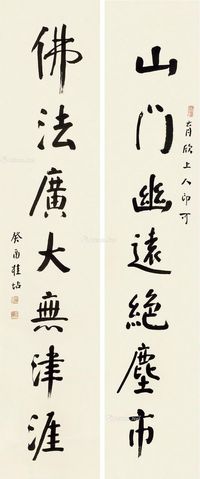 山门幽遠絕塵市
佛法廣大無津涯
欣上人印可
癸酉桂坫